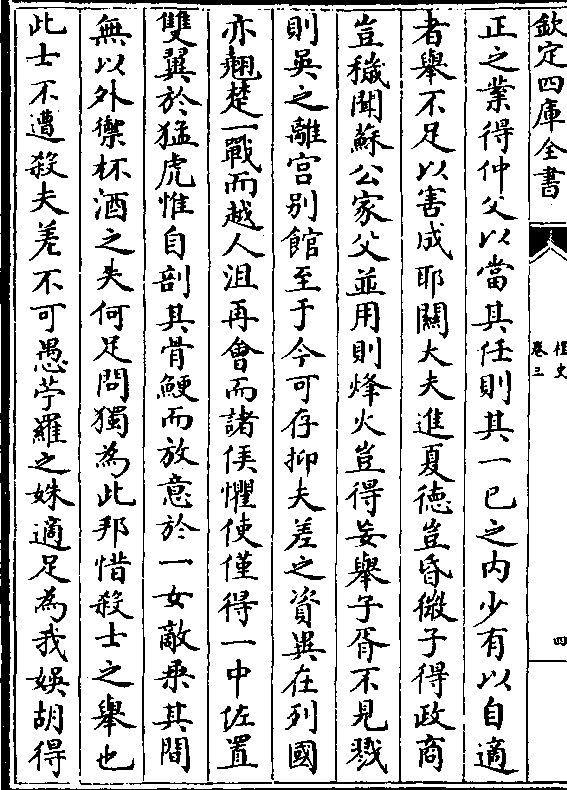 欽定四庫全書
桯史
卷三
四
正之業得仲父以當其任則其一已之内少有以自適
者舉不足以害成耶關大夫進夏德豈昏微子得政商
豈穢聞蘇公家父並用則烽火豈得妄舉子胥不見戮
則吳之離宫别館至于今可存抑夫差之資異在列國
亦翹楚一戰而越人沮再㑹而諸侯懼使僅得一中佐置
雙翼於猛虎惟自剖其骨鯁而放意於一女敵乘其間
無以外禦杯酒之失何足問獨為此邦惜殺士之舉也
此士不遭殺夫差不可愚苧羅之姝適足為我娛胡得